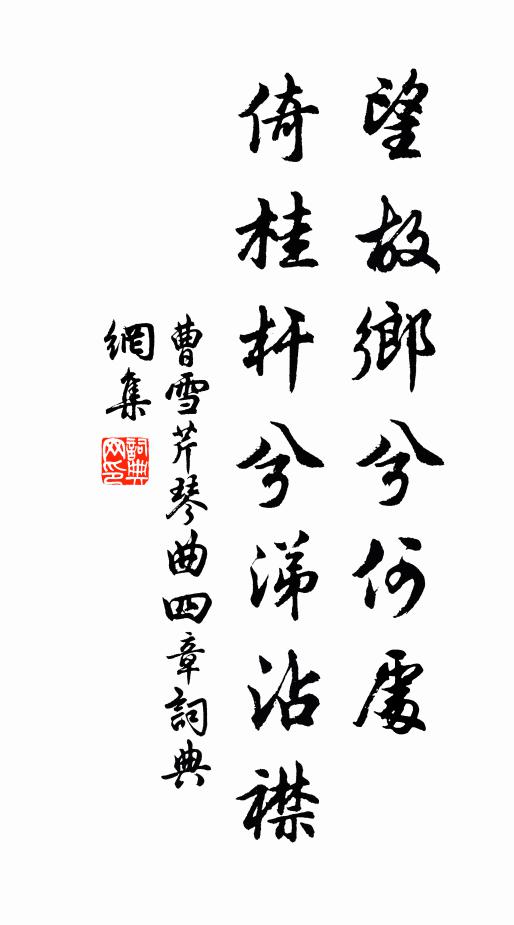 望故鄉兮何處
倚桂杆兮涕沾襟
曹雪芹琴曲四章詞典
網集
詞典
网印